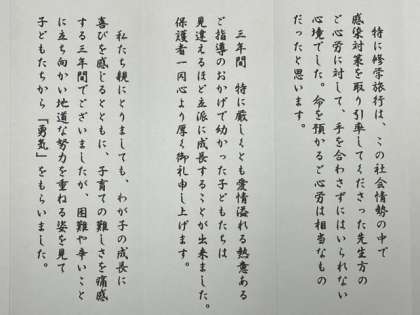 特に修学旅行は、この社会情勢の中で
感染対策を取り引率してくださった先生方の
ご心労に対して、手を合わさずにはいられない
心境でした。命を預かるご心労は相当なもの
だったと思います。
三年間　特に厳しくとも愛情溢れる熱意ある
ご指導のおかげで幼かった子どもたちは
見違えるほど立派に成長することが出来ました。
保護者一同心より厚く御礼申し上げます。
私たち親にとりましても、わが子の成長に
喜びを感じるとともに、子育ての難しさを痛感
する三年間でございましたが、困難や辛いこと
に立ち向かい地道な努力を重ねる姿を見て
子どもたちから「勇気」をもらいました。